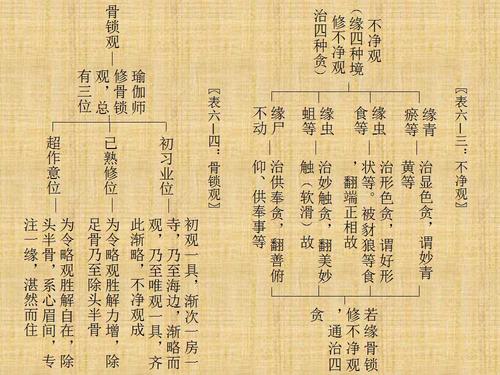 『表六—三：不净观』
不净观
(缘四种境
修不净观
治四种贪)
缘青
瘀等
治显色贪，谓妙青
黄等
缘虫
食等
治形色贪，谓好形
状等。被豺狼等食
，翻端正相故
缘虫
蛆等
治妙触贪，翻美妙
触（软滑）故
缘尸
不动
治供奉贪，翻善俯
仰、供奉事等
若缘骨锁
修不净观
，通治四
贪
『表六—四：骨锁观』
骨锁观
瑜伽师
修骨锁
观，总
有三位
初习业位
初观一具，渐次一房一
寺，乃至海边，渐略而
观，乃至唯观一具，齐
此渐略，不净观成
己熟修位
为令略观胜解力增，除
足骨乃至除头半骨
超作意位
为令略观胜解自在，除
头半骨，系心眉间，专
注一缘，湛然而住